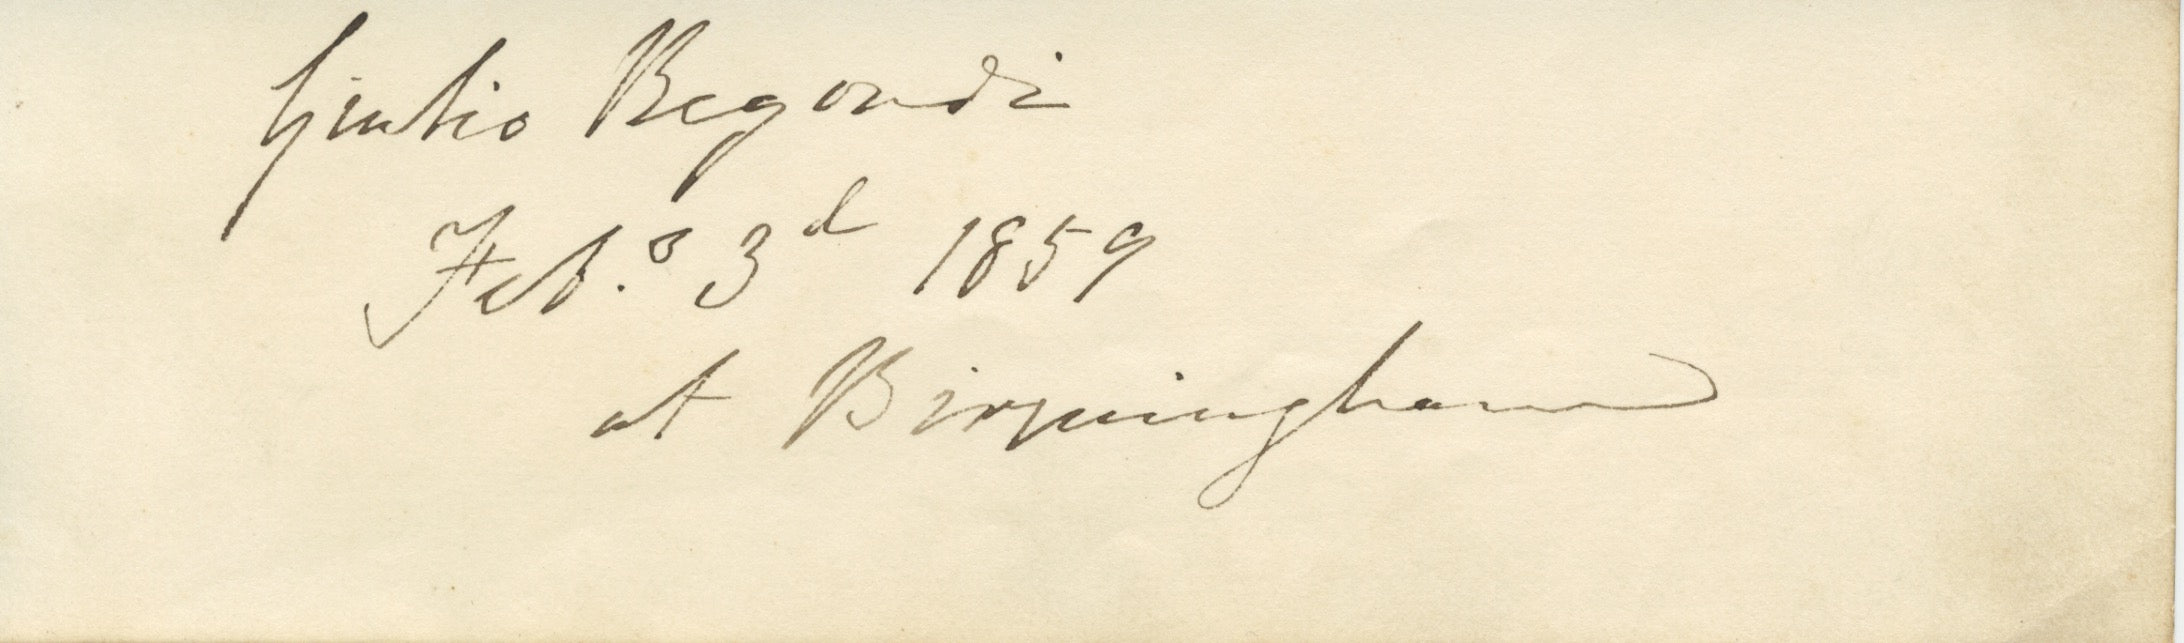 Giulio Regondi
Feb.º 3d 1859
at Birmingham